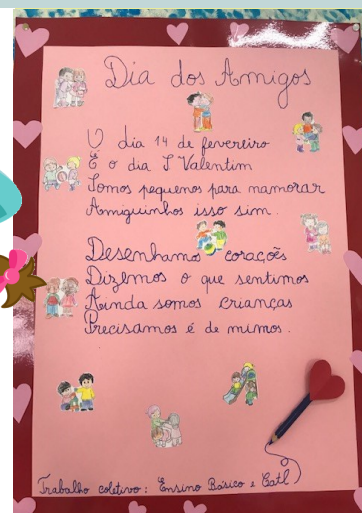 Dia dos Amigos
O dia 14 de fevereiro
É o dia S. Valentim
Somos pequenos para namorar
Amiguinhos isso sim.
Desenhamos corações
Dizemos o que sentimos
Ainda somos crianças
Precisamos é de mimos.
Trabalho coletivo: Ensino Básico e Catl